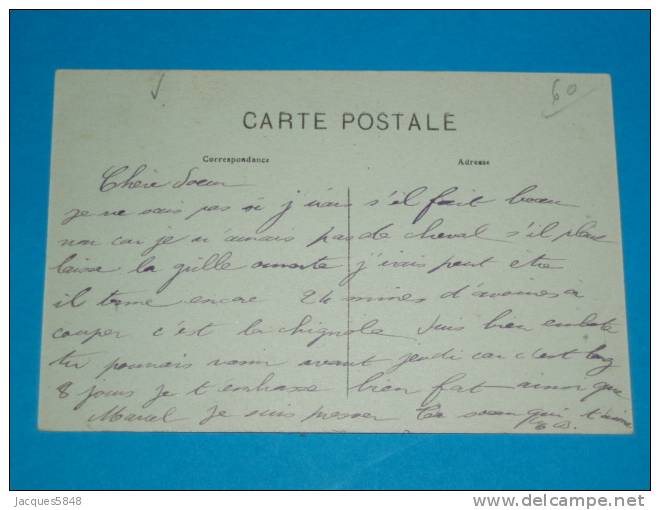 60
CARTE POSTALE
Correspondance Adresse
Chère Soeur
je ne sais pas si j irais s'il fait beau
non car je n'aurais pas de cheval s'il pleu
laisse la grille ouverte j'irais peut etre
il tonne encore 24 mines d'avoines a
couper c'est la chignole suis bien
tu pourrais venir avant jeudi car c'est long
8 jours je t'embrasse bien fort ainsi que
Marcel je suis presser Ta soeur qui t'aime
Jacques5848
delcampe.net